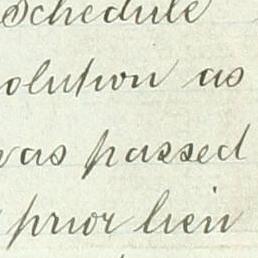 Schedule
olution as
was passed
prior lien